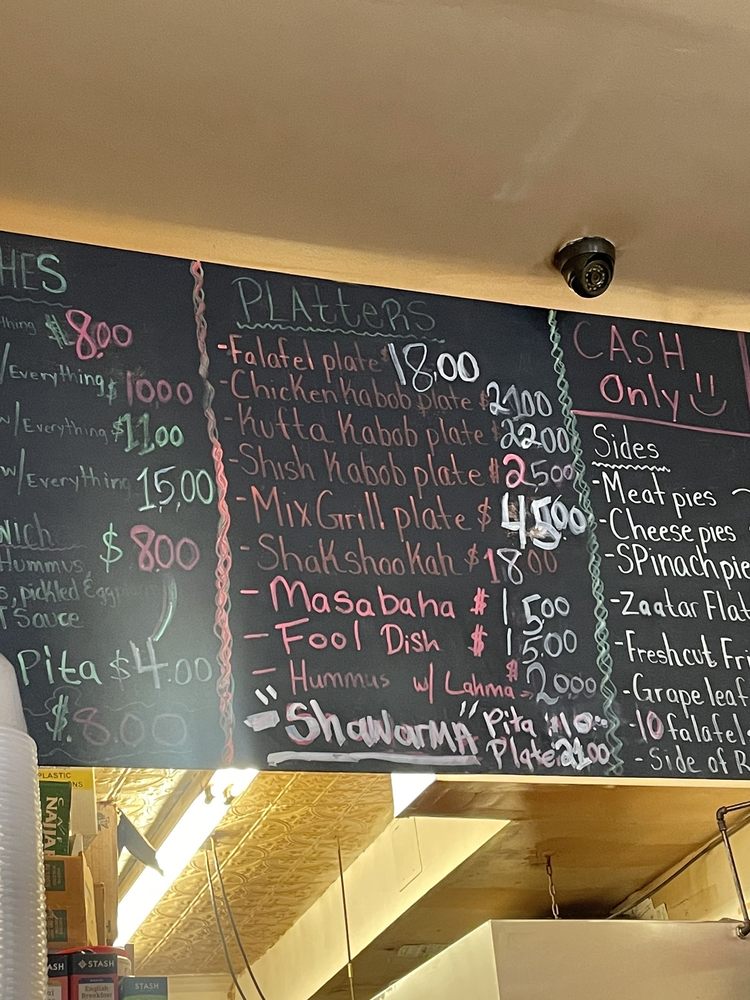 HES
thing $8.00
/Everything $1000
w/Everything $11.00
w/Everything 15.00
wich
Hummus, $800
s, pickled
Sauce
Pita $4.00
$8.00
PLAtteRS
-Falafel plate $18.00
-Chicken Kabob plate $2100
-Kufta Kabob plate $2200
-Shish Kabob plate $2500
-Mix Grill plate $4500
-Shakshookah $1800
- Masabaha $1500
- Fool Dish $15.00
- Hummus w/ Lahma → $2000
- "ShawarMA" Pita $10.00
Plate 2100
CASH
Only
Sides
-Meat pies
-Cheese pies
-SPinach pie
-Zaatar Flat
-Fresh cut Fri
-Grape leaf
-10 falafel
-Side of R
PLASTIC
STASH
STASH
English
Breakfast
STASH